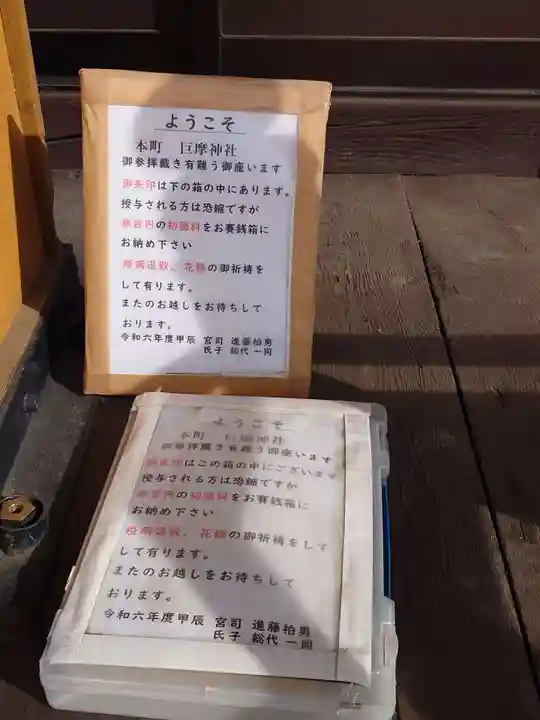 ようこそ
本町 巨摩神社
御参拝戴き有難う御座います
御朱印は下の箱の中にあります。
授与される方は恐縮ですが
参百円の初穂料をお賽銭箱に
お納め下さい
疫病退散、花鎮の御祈祷を
して有ります。
またのお越しをお待ちして
おります。
令和六年度甲辰 宮司 進藤柏男
氏子 総代 一同
ようこそ
本町 巨摩神社
御参拝戴き有難う御座います
御朱印はこの箱の中にございます
授与される方は恐縮ですが
参百円の初穂料をお賽銭箱に
お納め下さい
疫病退散、花鎮の御祈祷をして
して有ります。
またのお越しをお待ちして
おります。
令和六年度甲辰 宮司 進藤柏男
氏子 総代 一同